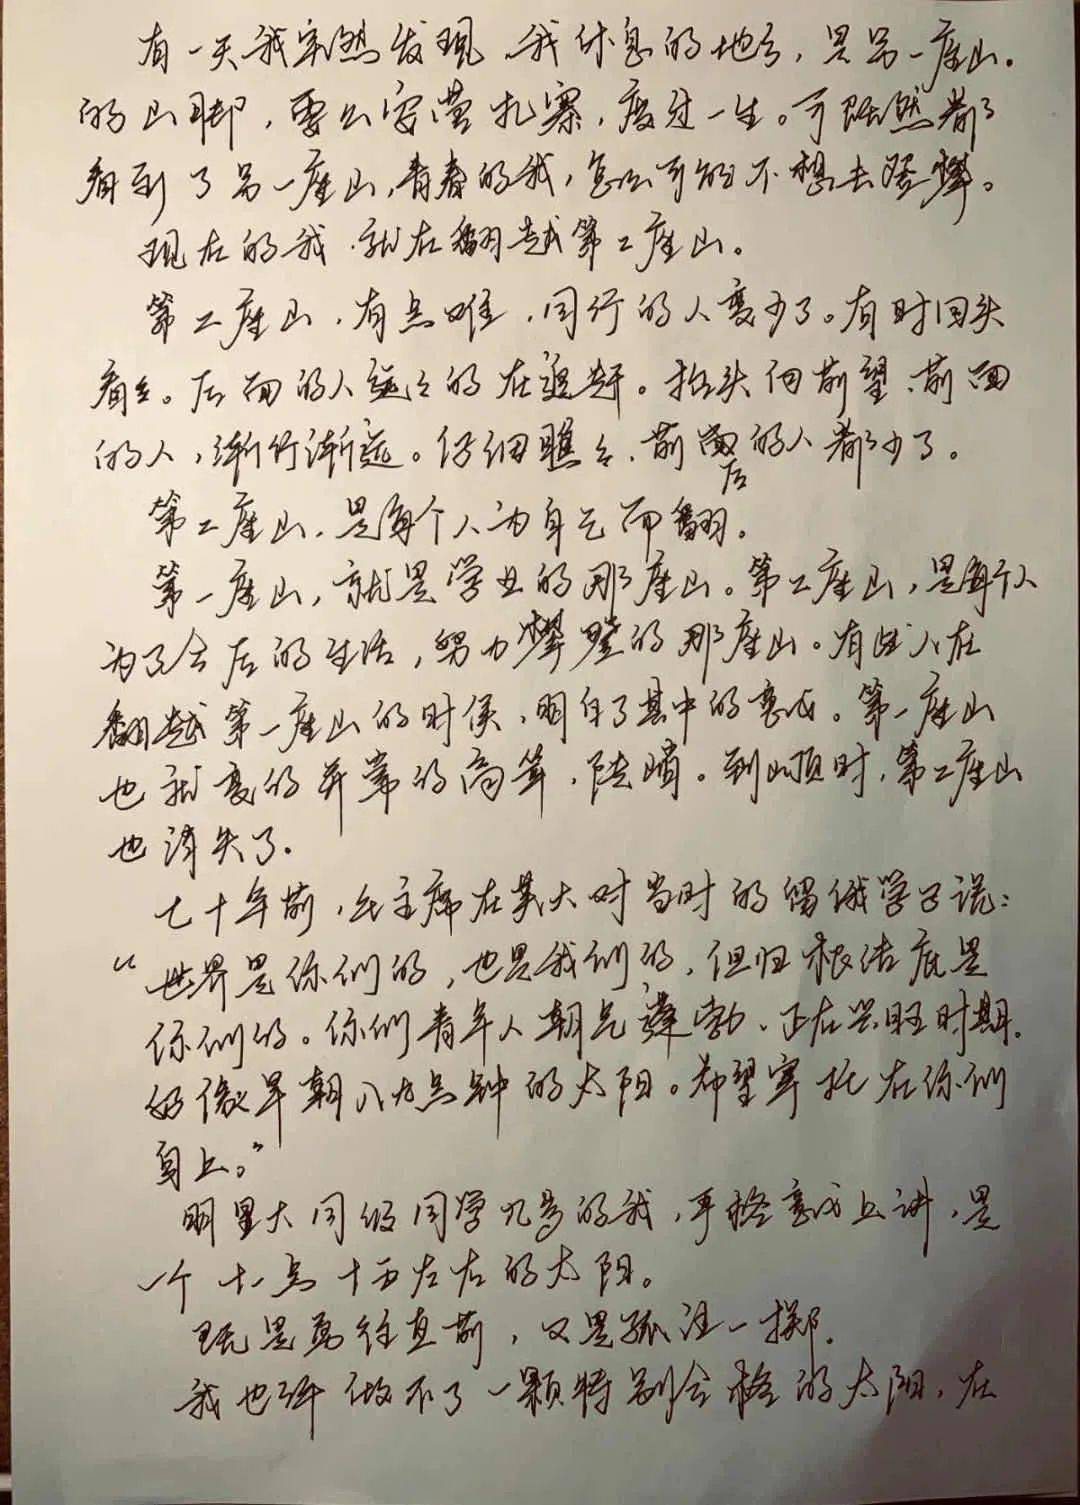 有一天我突然发现，我休息的地方，是另一座山。
的山脚，要么安营扎寨，度过一生。可既然都
看到了另一座山，青春的我，怎么可能不想去登攀。
现在的我，就在翻越第二座山。
第二座山，有点难，同行的人变少了。有时回头
看看。后面的人远远的在追赶。抬头向前望，前面
的人，渐行渐远。仔细瞧瞧，前后的人都少了。
第二座山，是每个人为自己而翻。
第一座山，就是学业的那座山。第二座山，是每个人
为了今后的生活，努力攀登的那座山。有些人在
翻越第一座山的时候，明白了其中的意义。第一座山
也就变的异常的高耸，陡峭。到山顶时，第二座山
也消失了。
七十年前，毛主席在莫大对当时的留俄学子说：
“世界是你们的，也是我们的，但归根结底是
你们的。你们青年人朝气蓬勃，正在兴旺时期。
好像早朝八九点钟的太阳。希望寄托在你们
身上。”
明显大同级同学几岁的我，严格意义上讲，是
一个十一点十五左右的太阳。
既是勇往直前，又是孤注一掷。
我也许做不了一颗特别合格的太阳，在